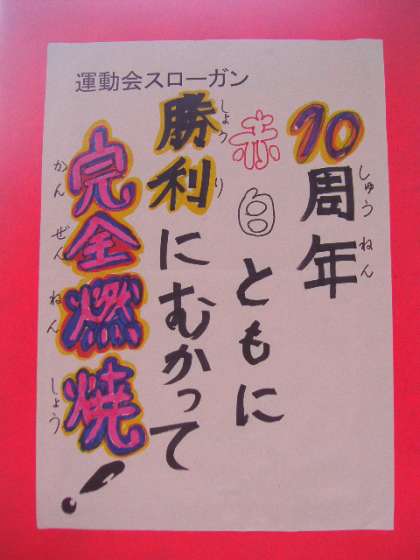 運動会スローガン
10周年
しゅうねん
赤白ともに
勝利にむかって
しょうり
完全燃焼!
かんぜんねんしょう